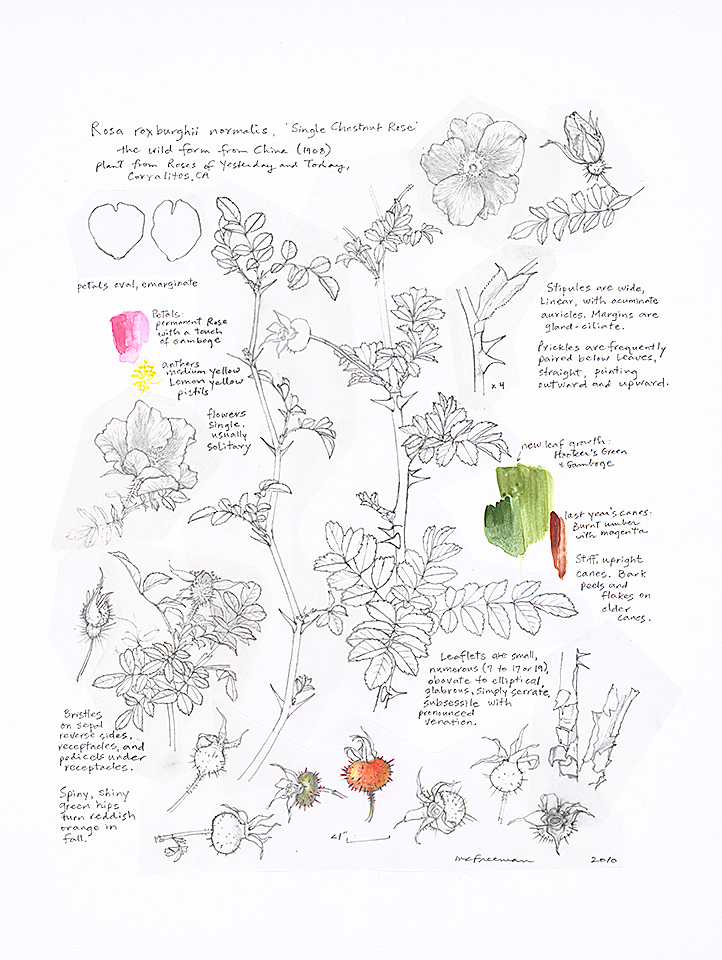 Rosa roxburghii normalis, 'Single Chestnut Rose'
the wild form from China (1908)
plant from Roses of Yesterday and Today,
Corralitos, CA
petals oval, emarginate
Petals:
permanent Rose
with a touch
of Gamboge
anthers
medium yellow
Lemon yellow
pistils
flowers
single,
usually
solitary
Stipules are wide,
Linear, with acuminate
auricles. Margins are
gland-ciliate.
Prickles are frequently
paired below leaves,
straight, pointing
outward and upward.
x 4
new leaf growth:
Hooker's Green
& Gamboge
last year's canes:
Burnt umber
with magenta
Stiff, upright
canes. Bark
peels and
flakes on
older
canes.
Leaflets are small,
numerous (7 to 17 or 19),
obovate to elliptical,
glabrous, simply serrate,
subsessile with
pronounced
venation.
Bristles
on sepal
reverse sides,
receptacles, and
pedicels under
receptacles.
Spiny, shiny
green hips
turn reddish
orange in
fall.
<1"
mcfreeman 2010